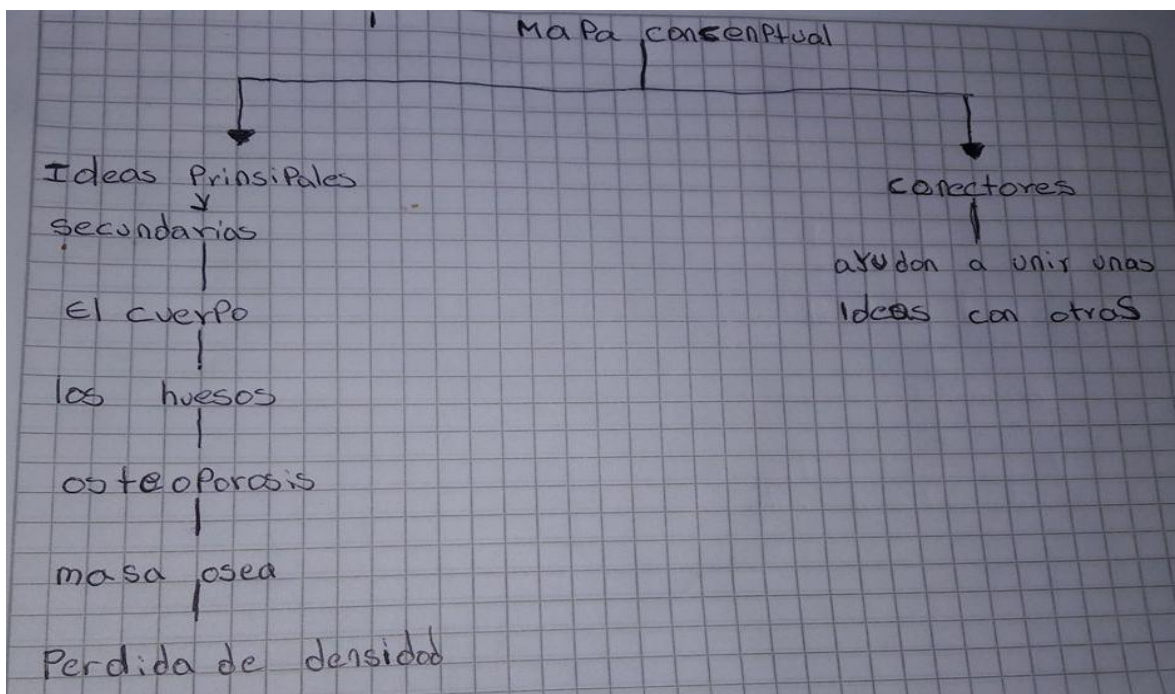 Mapa consenptual
Ideas Prinsipales
y
secundarias
El cuerpo
los huesos
osteoporosis
masa osea
Perdida de densidad
conectores
ayudan a unir unas
Ideas con otras